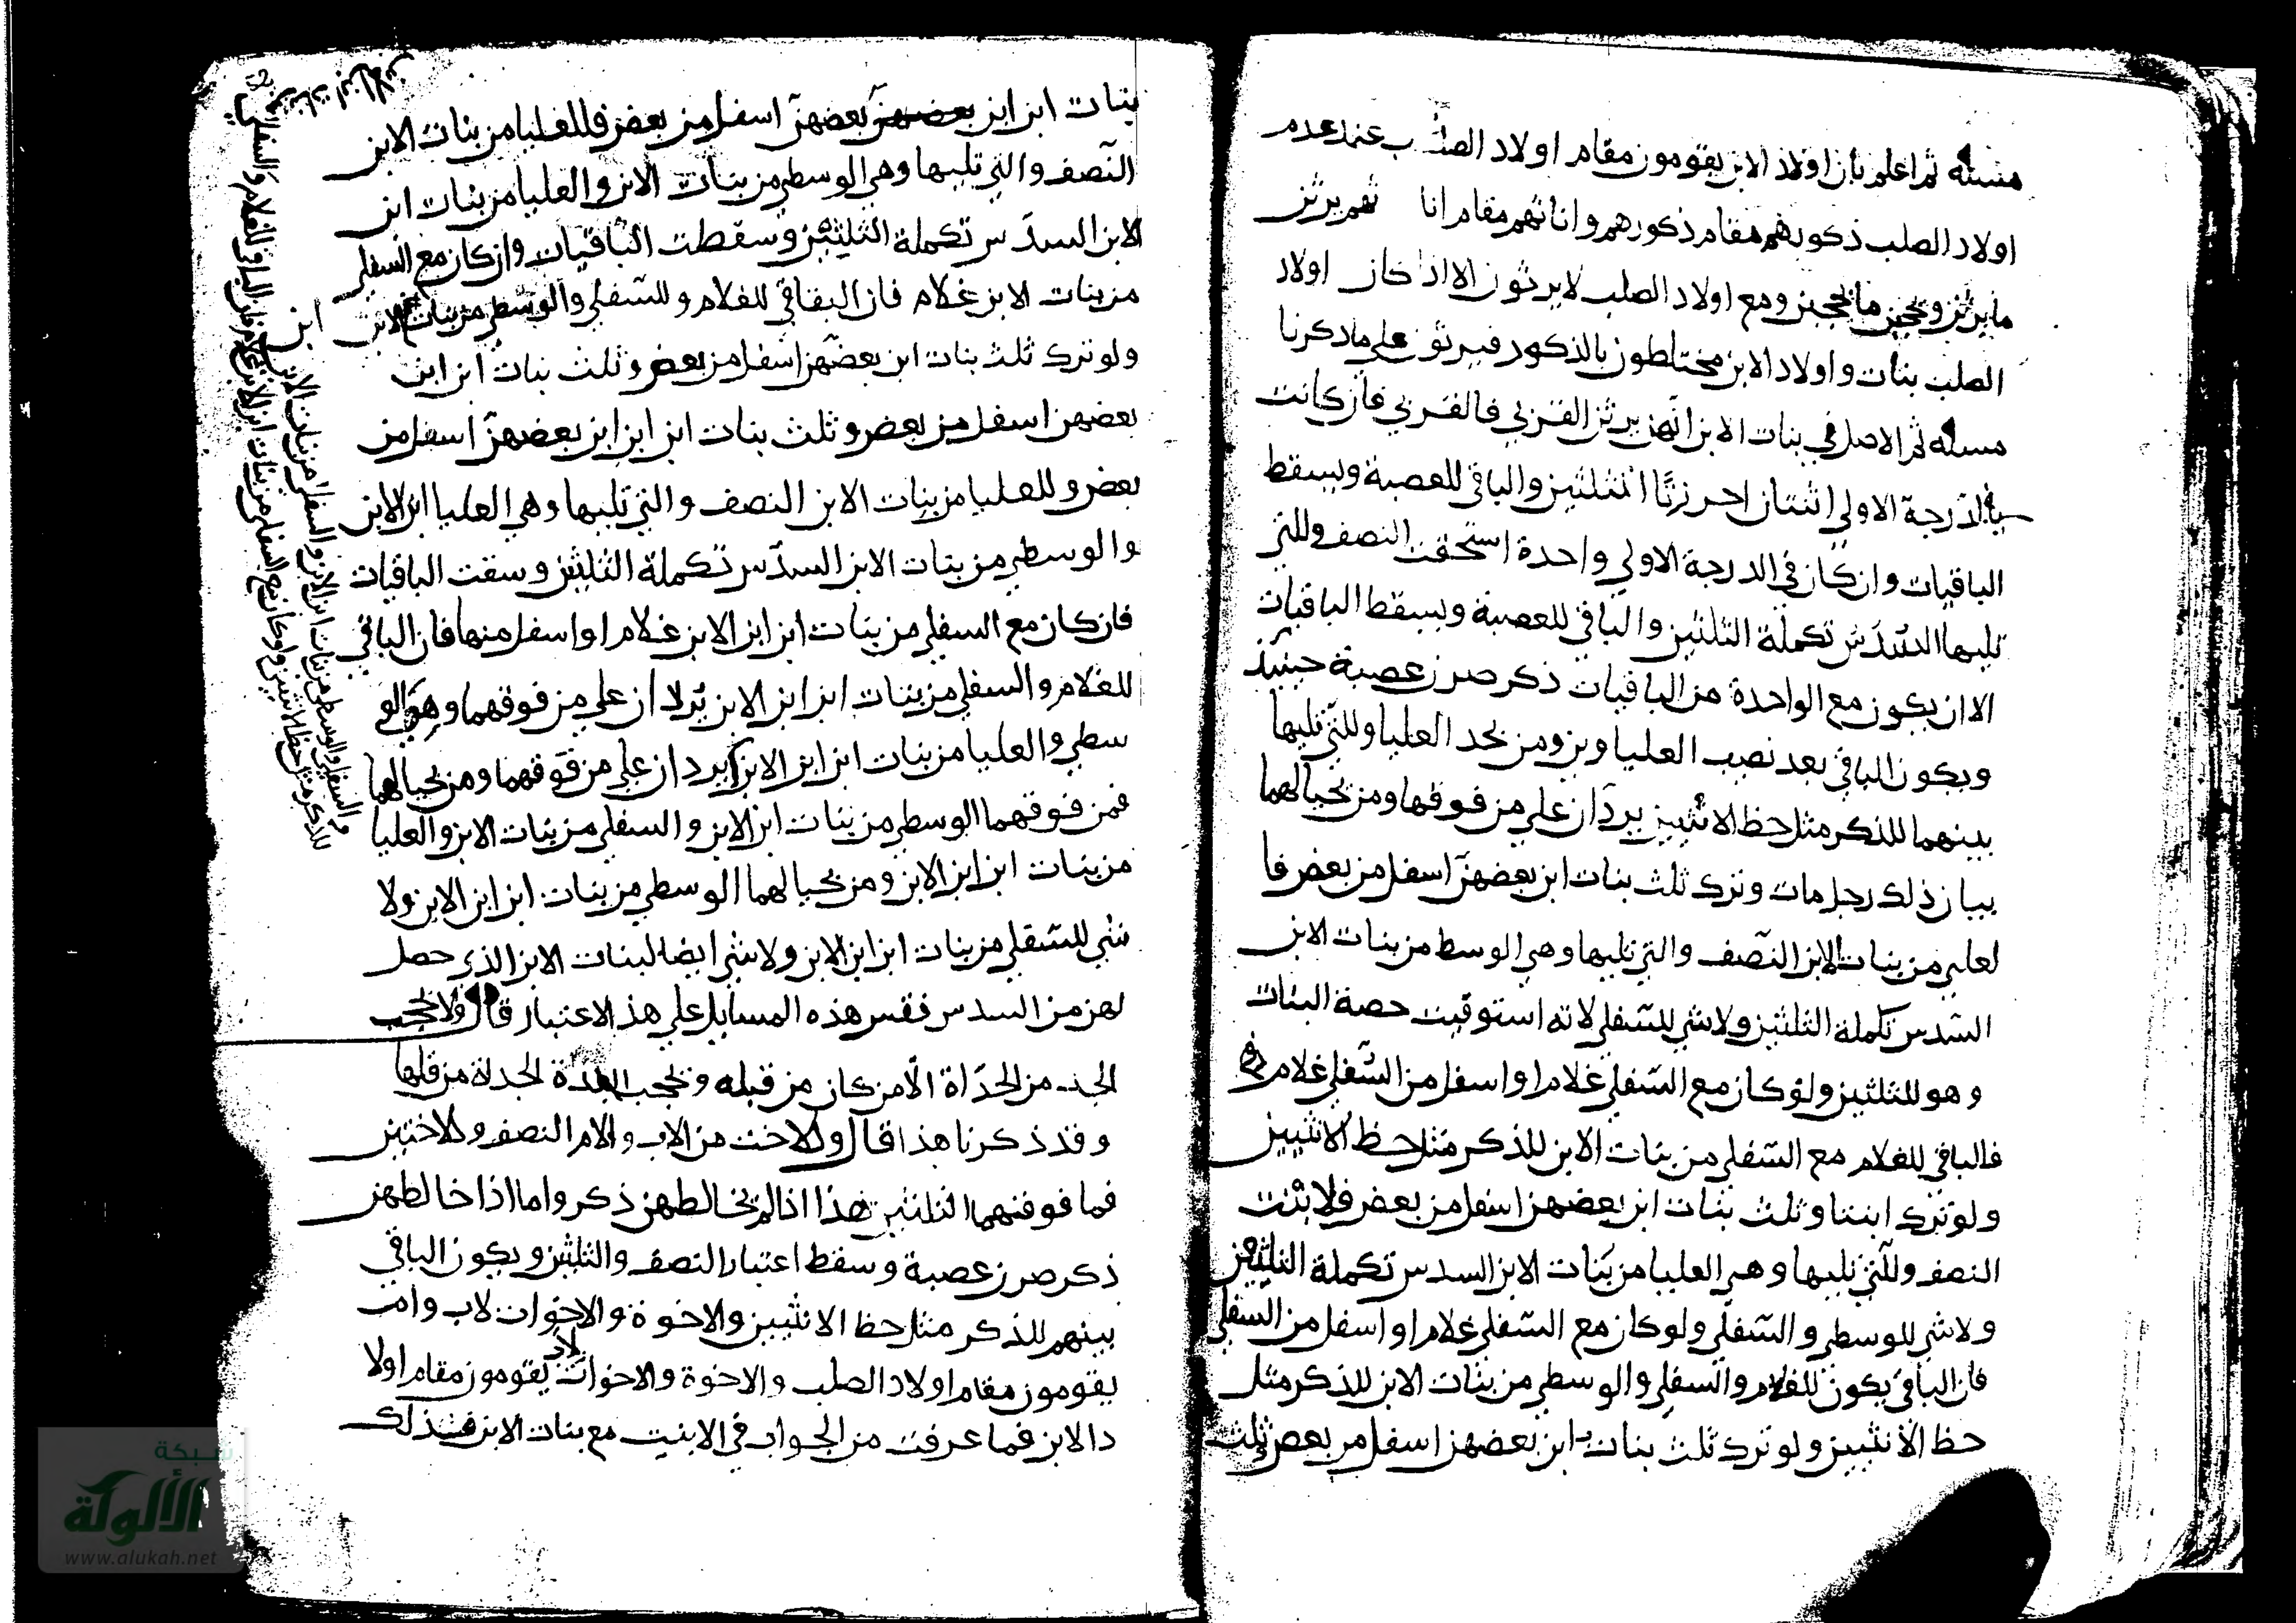 مسئله ثم اعلم بان اولاد الابن يقومون مقام اولاد الصلب عند عدم
اولاد الصلب ذكورهم مقام ذكورهم واناثهم مقام اناثهم يرثن
ما يرثن ويحجبن ما يحجبن ومع اولاد الصلب لا يرثون الا اذا كان اولاد
الصلب بنات واولاد الابن مختلطون بالذكور فيرثون على ما ذكرنا
مسئله ثم الاصل في بنات الابن انهن يرثن القربي فالقربي فان كانت
في الدرجة الاولي اثنتان احرزتا الثلثين والباقي للعصبة ويسقط
الباقيات وان كان في الدرجة الاولي واحدة استحقت النصف وللتي
تليها السدس تكملة الثلثين والباقي للعصبة ويسقط الباقيات
الا ان يكون مع الواحدة من الباقيات ذكر صرن عصبة حينئذ
ويكون الباقي بعد نصيب العليا وبن ومن بحد العليا وللتي تليها
بينهما للذكر مثل حظ الانثيين يردان علي من فوقها ومن بحيالهما
بيان ذلك رجل مات وترك ثلث بنات ابن بعضهن اسفل من بعض فا
لعلي من بنات الابن النصف والتي تليها وهي الوسط من بنات الابن
السدس تكملة الثلثين ولا شي للسفلي لانه استوفيت حصة البنات
وهو للثلثين ولو كان مع السفلي غلام او اسفل من السفلي غلام
فالباقي للغلام مع السفلي من بنات الابن للذكر مثل حظ الانثيين
ولو ترك ابنتا وثلث بنات ابن بعضهن اسفل من بعض فلابنت
النصف وللتي تليها وهي العليا من بنات الابن السدس تكملة الثلثين
ولا شي للوسطي والسفلي ولو كان مع السفلي غلام او اسفل من السفلي
فان الباقي يكون للغلام والسفلي والوسطي من بنات الابن للذكر مثل
حظ الانثيين ولو ترك ثلث بنات ابن بعضهن اسفل من بعض وثلث
بنات ابن ابن بعضهن بعضهن اسفل من بعض فللعليا من بنات الابن
النصف والتي تليها وهي الوسطي من بنات الابن والعليا من بنات ابن
الابن السدس تكملة الثلثين وسقطت الباقيات وان كان مع السفلي
من بنات الابن غلام فان البقاقي للغلام وللسفلي والوسطي من بنات ابن الابن
ولو ترك ثلث بنات ابن بعضهن اسفل من بعض وثلث بنات ابن ابن
بعضهن اسفل من بعض وثلث بنات ابن ابن ابن بعضهن اسفل من
بعض وللعليا من بنات الابن النصف والتي تليها وهي العليا ابن الابن
والوسطي من بنات الابن السدس تكملة الثلثين وسقت الباقيات
فان كان مع السفلي من بنات ابن ابن الابن غلام او اسفل منها فان الباقي
للغلام والسفلي من بنات ابن ابن الابن يردان علي من فوقهما وهو الو
سطي والعليا من بنات ابن ابن الابن يردان علي من فوقهما ومن بحيالهما
فمن فوقهما الوسطي من بنات ابن الابن والسفلي من بنات الابن والعليا
من بنات ابن ابن الابن ومن بحيالهما الوسطي من بنات ابن ابن الابن ولا
شي للسفلي من بنات ابن ابن الابن ولا شي ايضا لبنات الابن الذي حصل
لهن من السدس فقس هذه المسايل علي هذ الاعتبار قال ولا يحجب
الجد من الجداة الا من كان من قبله وتحجب الجدة الجدة من قبلها
وقد ذكرنا هذا قال وللاخت من الاب والام النصف وللاختين
فما فوقنهما الثلثين هذا اذا لم يخالطهن ذكر واما اذا خالطهن
ذكر صرن عصبة وسقط اعتبار النصف والثلثين ويكون الباقي
بينهم للذكر مثل حظ الانثيين والاخوة والاخوات لاب وام
يقومون مقام اولاد الصلب والاخوة والاخوات لاب يقومون مقام اولا
د الابن فما عرفت من الجواب في الابنيت مع بنات الابن فذلك
شبكة
الألوكة
www.alukah.net